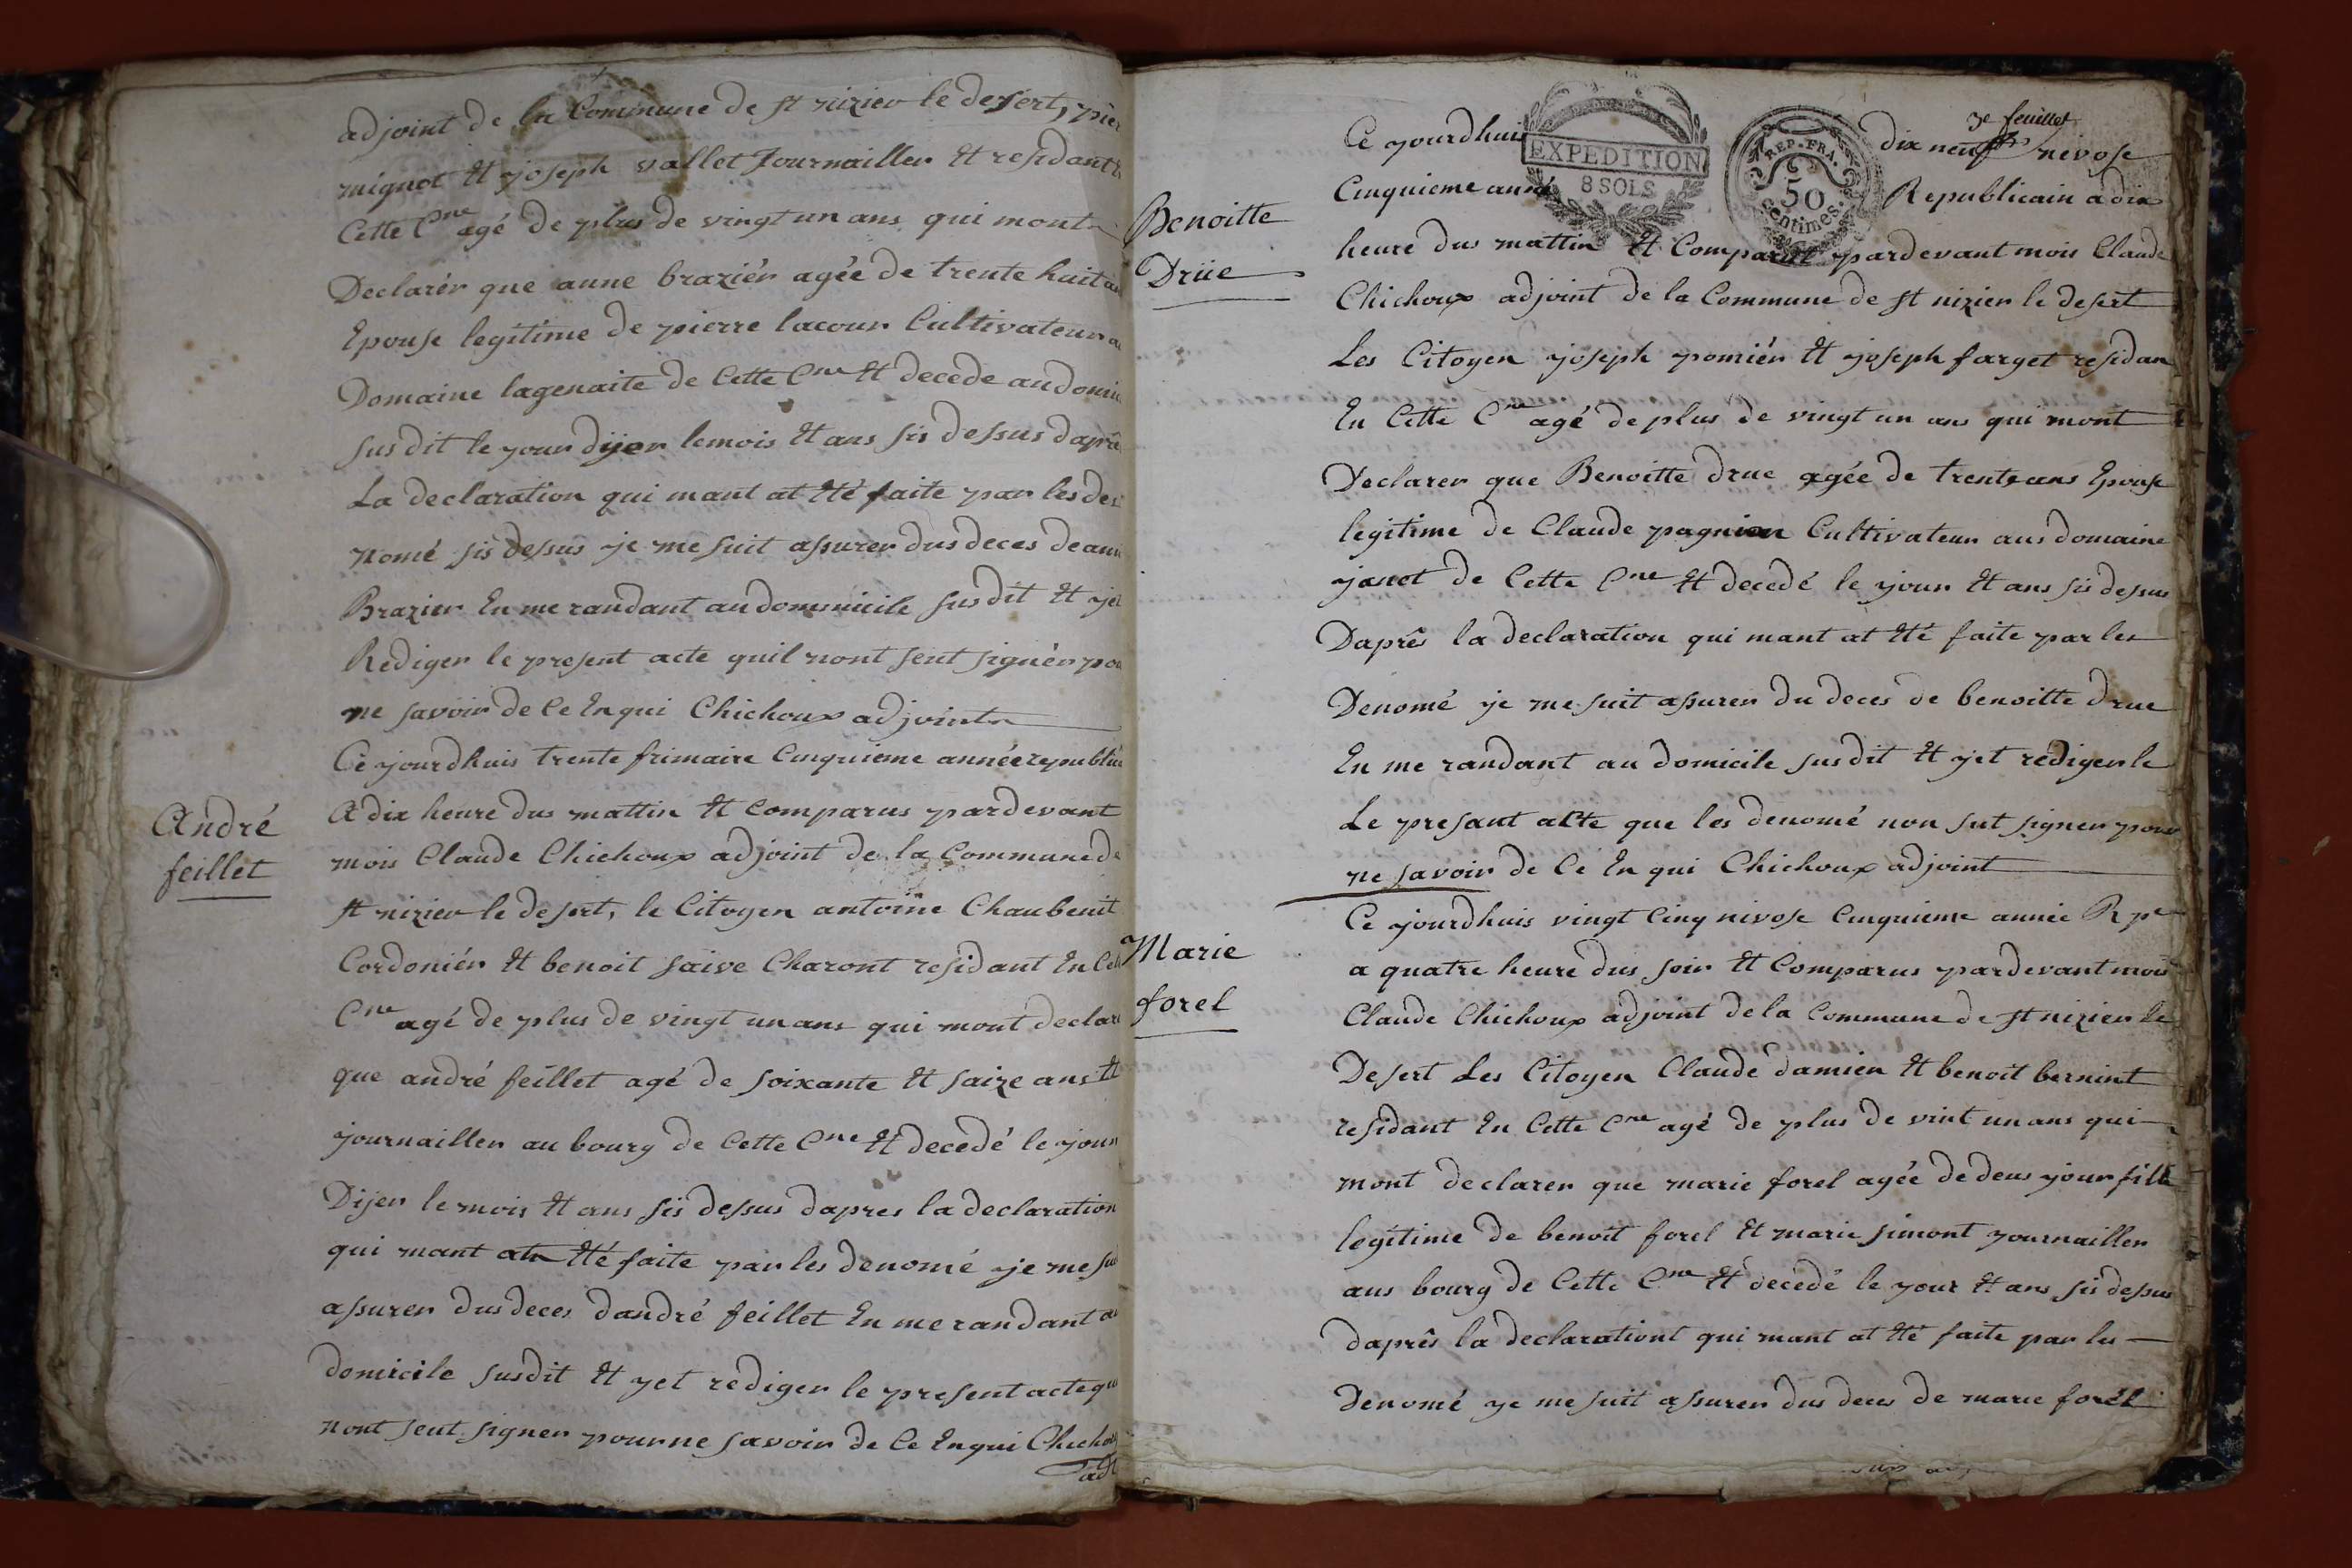 adjoint de la Commune de st nizier le desert, pier
mignot et joseph vallet Journailler et residant
Cette Cne agé de plus de vingt un ans qui mont
Declarér que anne braziér agée de trente huit an
Epouse legitime de pierre lacour Cultivateur a
Domaine lagenaite de Cette Cne et decede au domi
susdit le jour dijer lemois et ans sis dessus daprê
La declaration qui mant at été faite par les de
nomé sis dessus je me suit assurer dus deces de ann
Brazier En me randant au domnicile susdit et yet
Rediger le present acte quil nont seut signér po
ne savoir de Ce Enqui Chichoux adjoint
Ce jourdhuis trente frimaire Cinquieme année republi
A dix heure dus mattin et comparus pardevant
André
mois Claude Chichoux adjoint de la Commune de
feillet
st nizier le desert, le Citoyen antoine Chaubenit
Cordoniér et benoit saive Charont residant En Cet
Cne agé de plus de vingt un ans qui mont declar
que andré feillet agé de soixante et saize ans et
journailler au bourg de Cette Cne et decedé le jour
Dijer le mois et ans sis dessus dapres la declaration
qui mant at été faite par les denomé je me sui
assurer dus deces dandré feillet En me randant a
domicile susdit et yet rediger le present acte qu
nont seut signer pour ne savoir de Ce Enqui Chichou
adt
3e feuillet
Ce jourdhuis dix neuf nivose
EXPEDITION
8 SOLS
REP. FRA.
50
centimes.
Cinquieme anné Republicain a dix
Benoitte
Drüe
heure dus mattin et Comparut pardevant mois Claude
Chichoux adjoint de la Commune de st nizier le desert
Les Citoyen joseph pomiér et joseph farget residan
En Cette Cne agé de plus de vingt un ans qui mont
Declarer que Benoitte drue agée de trente ans Epouse
legitime de Claude pagnion Cultivateur aus domaine
janet de Cette Cne et decedé le jour et ans sis dessus
Daprês la declaration qui mant at été faite par les
Denomé je me suit assurer du deces de benoitte drue
En me randant au domicile susdit et yet rediger le
Le presant acte que les denomé non sut signer pour
ne savoir de Ce En qui Chichoux adjoint
Ce jourdhuis vingt Cinq nivose Cinquieme année Rpe
Marie
forel
a quatre heure dus soir et Comparus pardevant mois
Claude Chichoux adjoint de la Commune de st nizier le
Desert Les Citoyen Claude damien et benoit bernint
residant En Cette Cne agé de plus de vint un ans qui
mont declarer que marie forel agée de deus jour fille
legitime de benoit forel et marie simont journailler
aus bourg de Cette Cne et decedé le jour et ans sis dessus
daprês la declarationt qui mant at été faite par les
Denomé je me suit assurer dus deces de marie forel